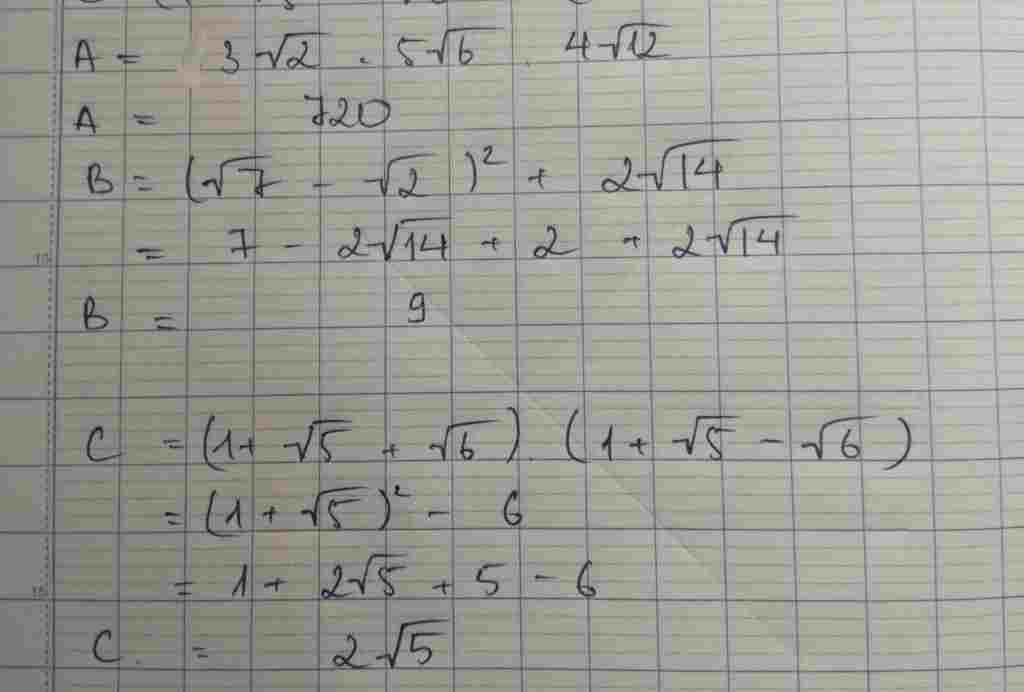 A = 3√2 . 5√6 . 4√12
A = 720
B = (√7 - √2)² + 2√14
= 7 - 2√14 + 2 + 2√14
B = 9
C = (1+ √5 + √6) . (1 + √5 - √6)
= (1 + √5)² - 6
= 1 + 2√5 + 5 - 6
C = 2√5